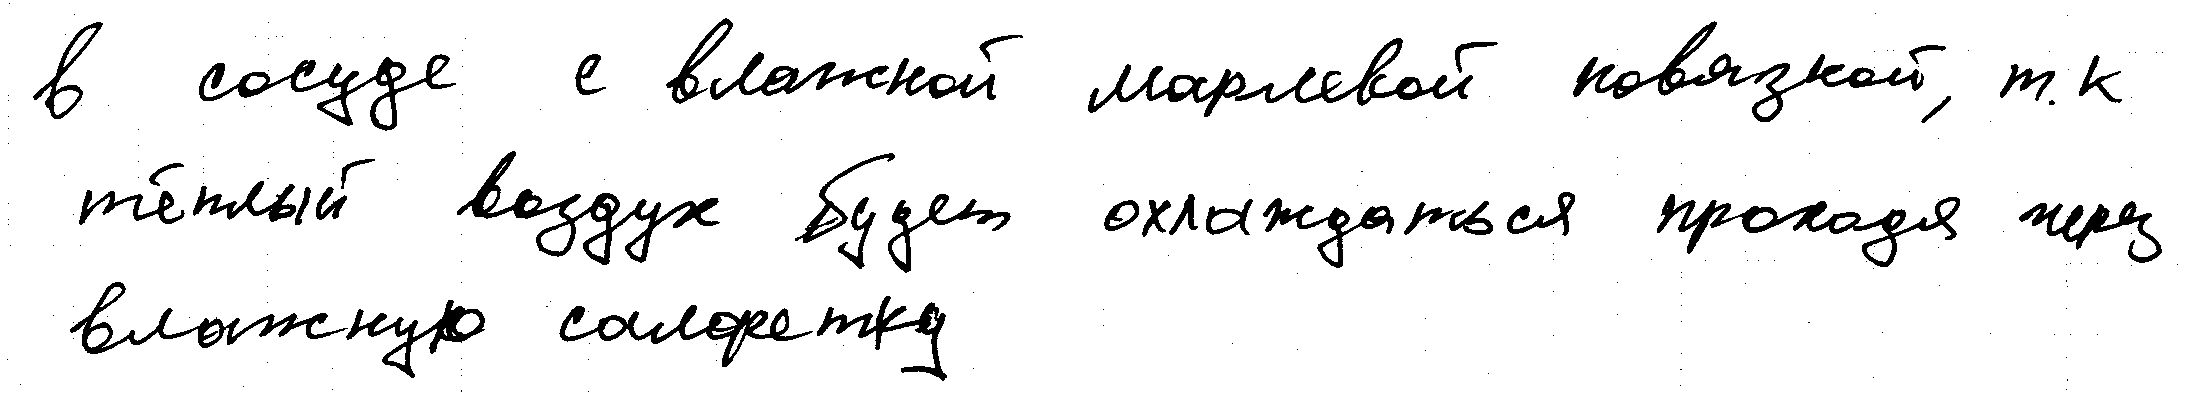 в сосуде с влажной марлевой повязкой, т.к
тёплый воздух будет охлаждаться проходя через
влажную салфетку